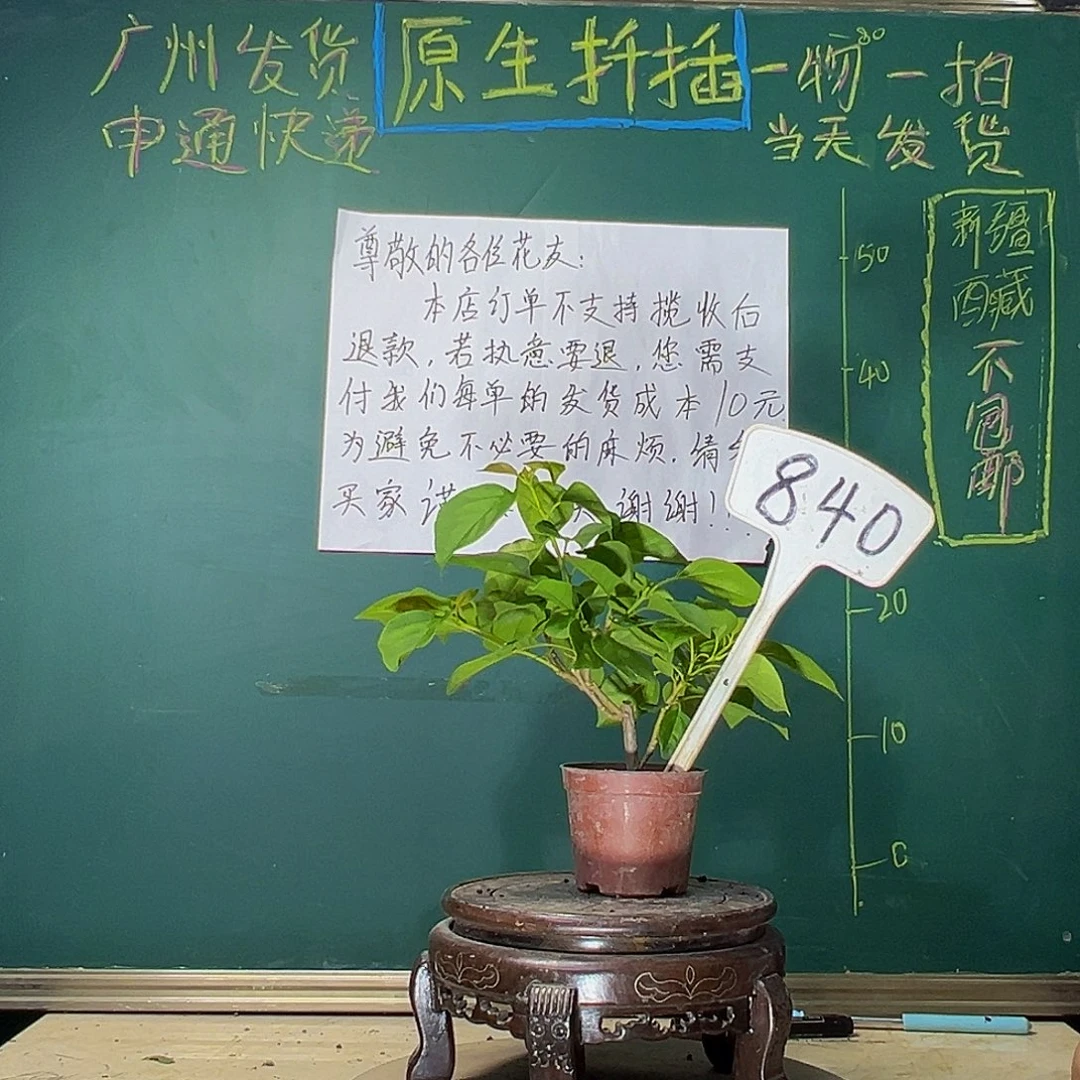 广州发货
申通快递
原生扦插
一物一拍
80
当天发货
尊敬的各位花友:
本店订单不支持揽收后
退款,若执意要退,您需支
付我们每单的发货成本10元
为避免不必要的麻烦.请
买家谨 谢谢!
840
50
40
20
10
0
新疆
西藏
不包邮